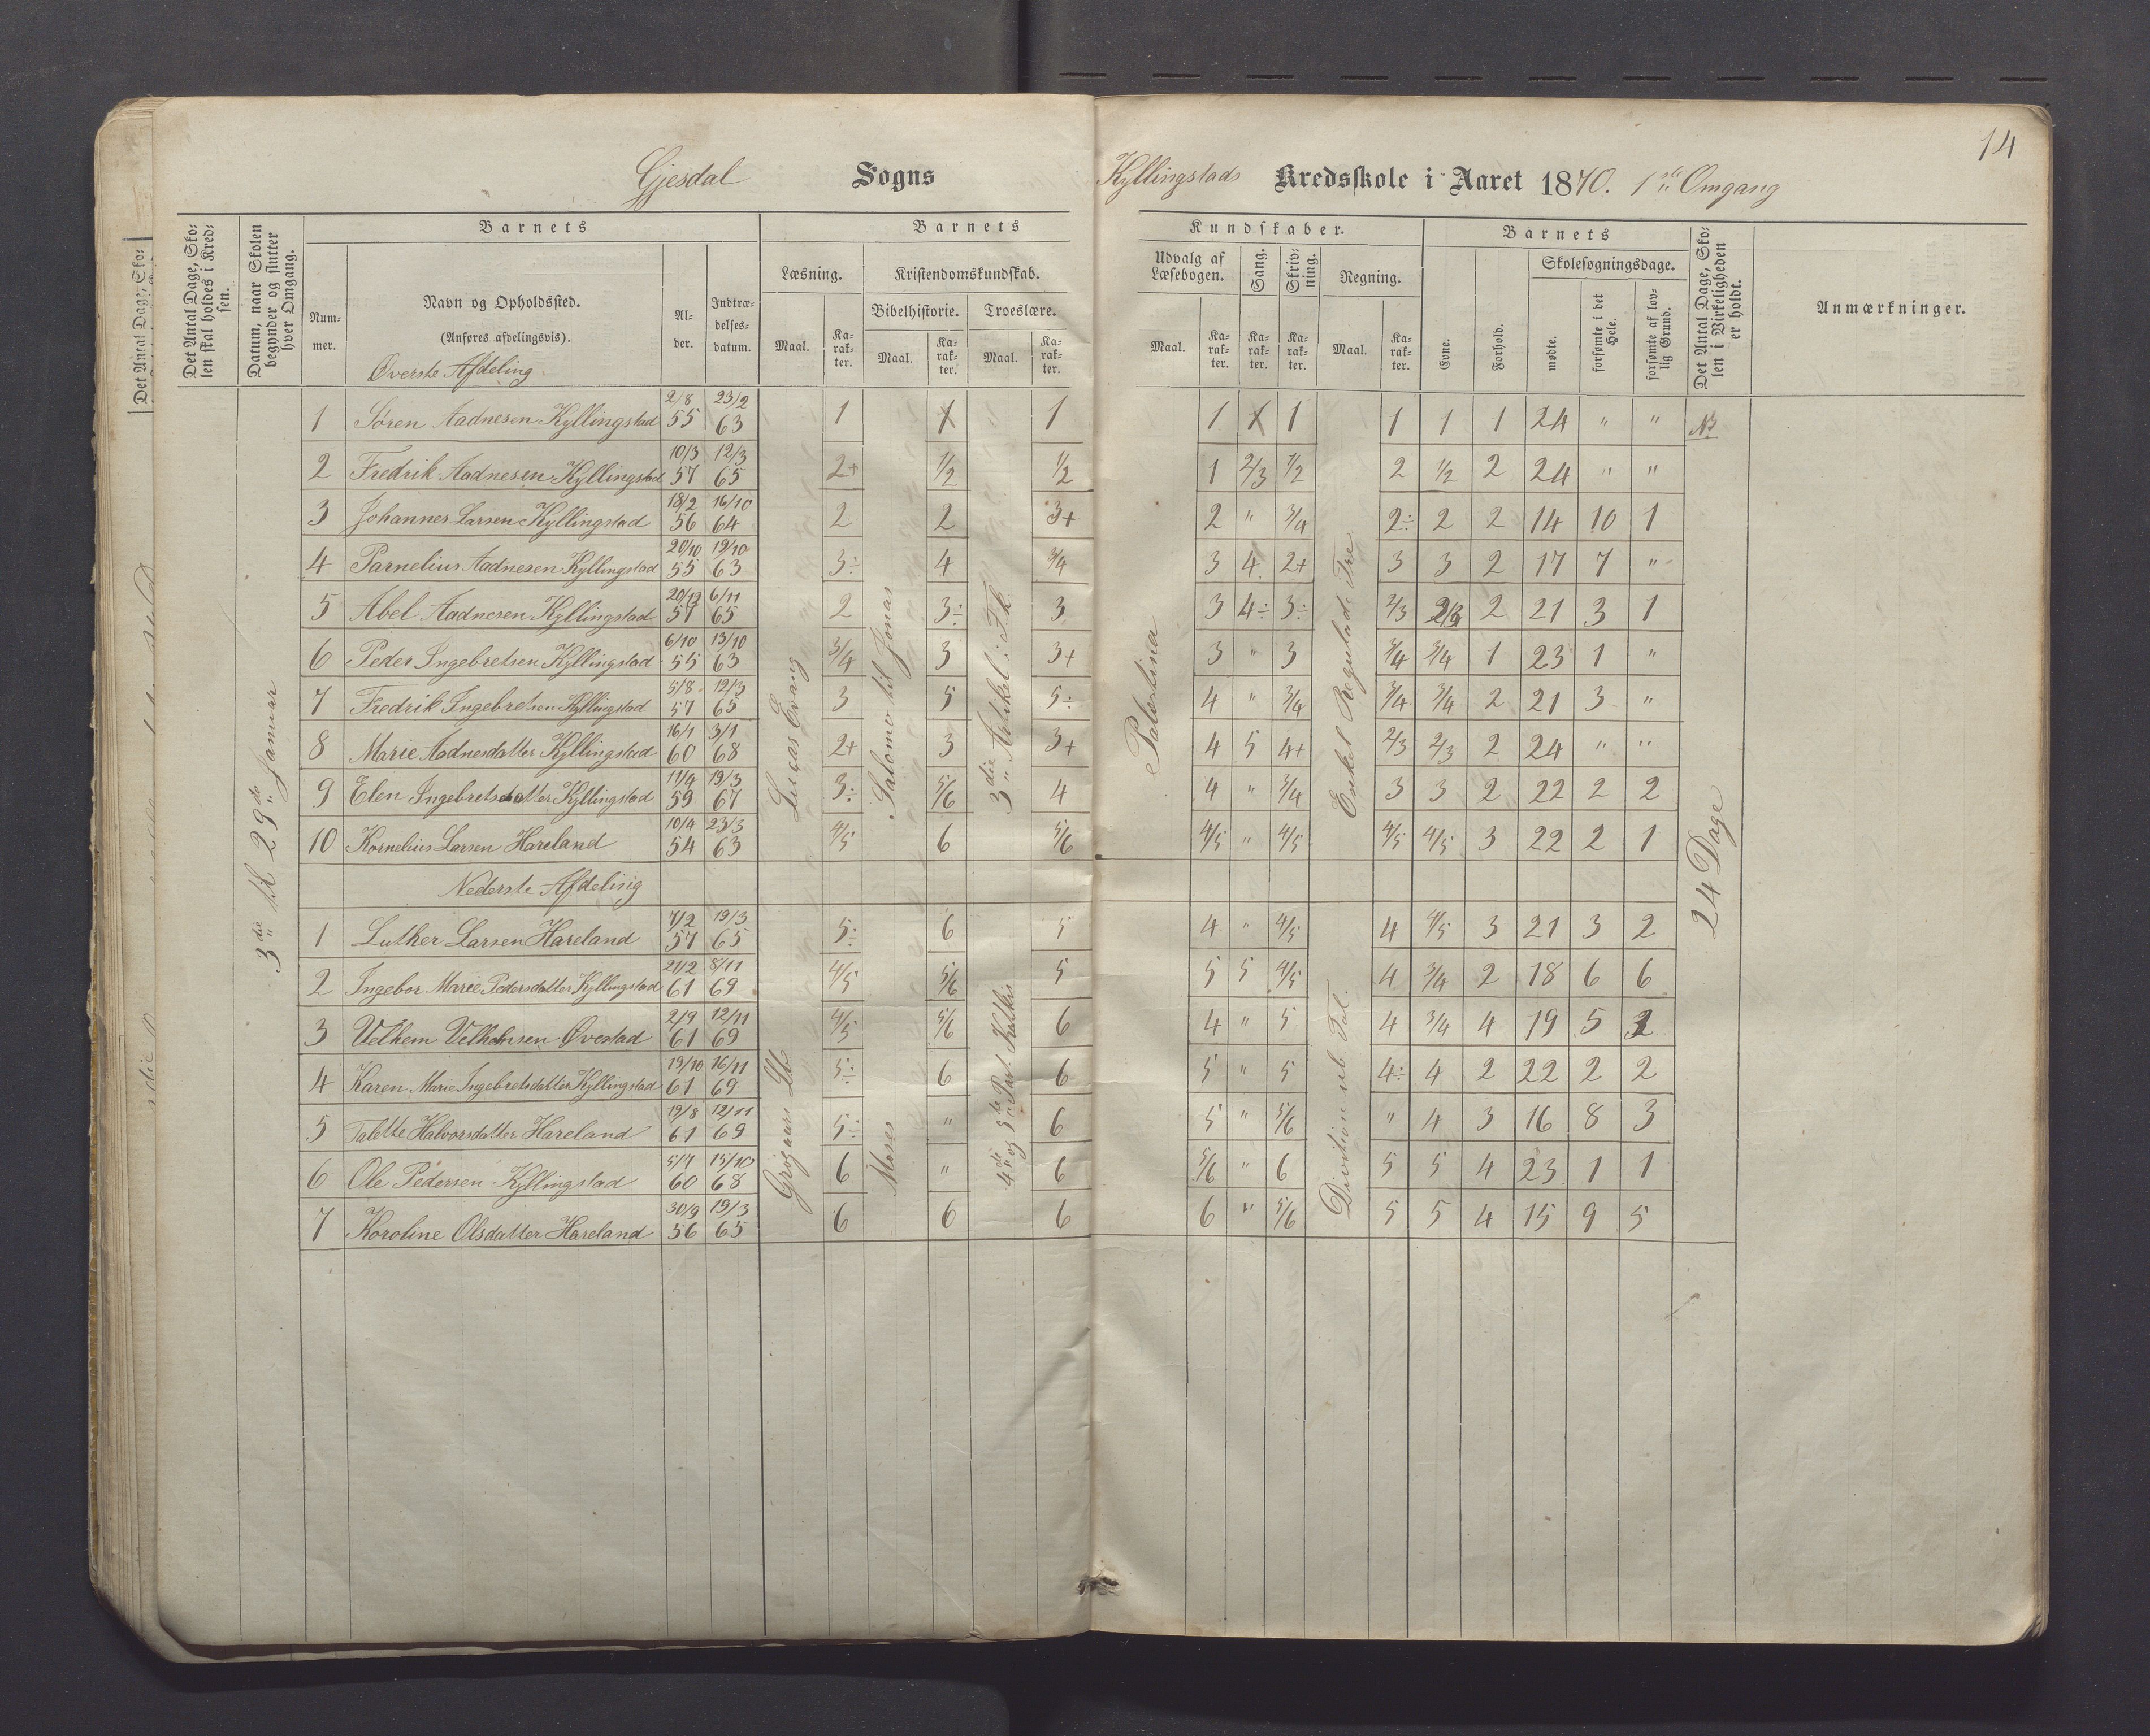 14
Gjesdal Sogns Kyllingstads Kredsskole i Aaret 1870. 1ste Omgang
Det Antal Dage, Skolen skal holdes i Kredsen.
Datum, naar Skolen begynder og slutter hver Omgang.
Barnets
Nummer.
Navn og Opholdssted.
(Anføres afdelingsvis).
Alder.
Indtrædelsesdatum.
Barnets Kundskaber.
Læsning. Maal. Karakter.
Kristendomskundskab.
Bibelhistorie. Maal. Karakter.
Troeslære. Maal. Karakter.
Udvalg af Læsebogen. Maal. Karakter.
Sang. Karakter.
Skrivning. Karakter.
Regning. Maal. Karakter.
Barnets
Evne.
Forhold.
Skolesøgningsdage.
mødte.
forsømte i det Hele.
forsømte af lovlig Grund.
Det Antal Dage, Skolen i Virkeligheden er holdt.
Anmærkninger.
Øverste Afdeling
1 Søren Aadnesen Kyllingstad 2/8 55 23/2 63 1 1 1 1 1 1 1 1 1 24 " "
2 Fredrik Aadnesen Kyllingstad 10/3 57 12/3 65 2+ 1/2 1/2 1 2/3 1/2 2 1/2 2 24 " "
3 Johannes Larsen Kyllingstad 18/2 56 16/10 64 2 2 3+ 2 " 3/4 2÷ 2 2 14 10 1
4 Parnelius Aadnesen Kyllingstad 20/10 55 19/10 63 3÷ 4 3/4 3 4 2+ 3 3 2 17 7 "
5 Abel Aadnesen Kyllingstad 20/12 57 6/11 65 2 3÷ 3 3 4÷ 3÷ 2/3 2/3 2 21 3 1
6 Peder Ingebretsen Kyllingstad 6/10 55 13/10 63 3/4 3 3+ 3 " 3 3/4 3/4 1 23 1 "
7 Fredrik Ingebretsen Kyllingstad 5/8 57 12/3 65 3 5 5÷ 4 " 3/4 3/4 3/4 2 21 3 "
8 Marie Aadnesdatter Kyllingstad 16/1 60 3/1 68 2+ 3 3+ 4 5 4+ 2/3 2/3 2 24 " "
9 Elen Ingebretsdatter Kyllingstad 11/4 59 19/3 67 3÷ 5/6 4 4 " 3/4 3 3 2 22 2 2
10 Kornelius Larsen Hareland 10/4 54 23/3 63 4/5 6 5/6 4/5 " 4/5 4/5 4/5 3 22 2 1
Nederste Afdeling
1 Luther Larsen Hareland 7/2 57 19/3 65 5÷ 6 5 4 " 4/5 4 4/5 3 21 3 2
2 Ingebor Marie Pedersdatter Kyllingstad 21/2 61 8/11 69 4/5 5/6 5 5 5 4/5 4 3/4 2 18 6 6
3 Velhem Velhemsen Øvestad 2/9 61 12/11 69 4/5 5/6 6 4 " 5 4 3/4 4 19 5
4 Karen Marie Ingebretsdatter Kyllingstad 19/10 61 16/11 69 5÷ 6 6 5 " 5 4÷ 4 2 22 2 2
5 Talette Halvorsdatter Hareland 19/8 61 12/11 69 5÷ " 6 5 " 5/6 " 4 3 16 8 3
6 Ole Pedersen Kyllingstad 5/7 60 15/10 68 6 " 6 5/6 " 6 5 5 4 23 1 1
7 Koroline Olsdatter Hareland 30/9 56 19/3 65 6 6 6 6 " 5/6 5 5 4 15 9 5
3die til 29de Januar
Lucas Evang
Salomo til Jonas
3die Artikel i F.k.
Palestina
Enkel Regulade Tre
24 Dage
Moses
4de og 5te Part.
Division ub Tal.